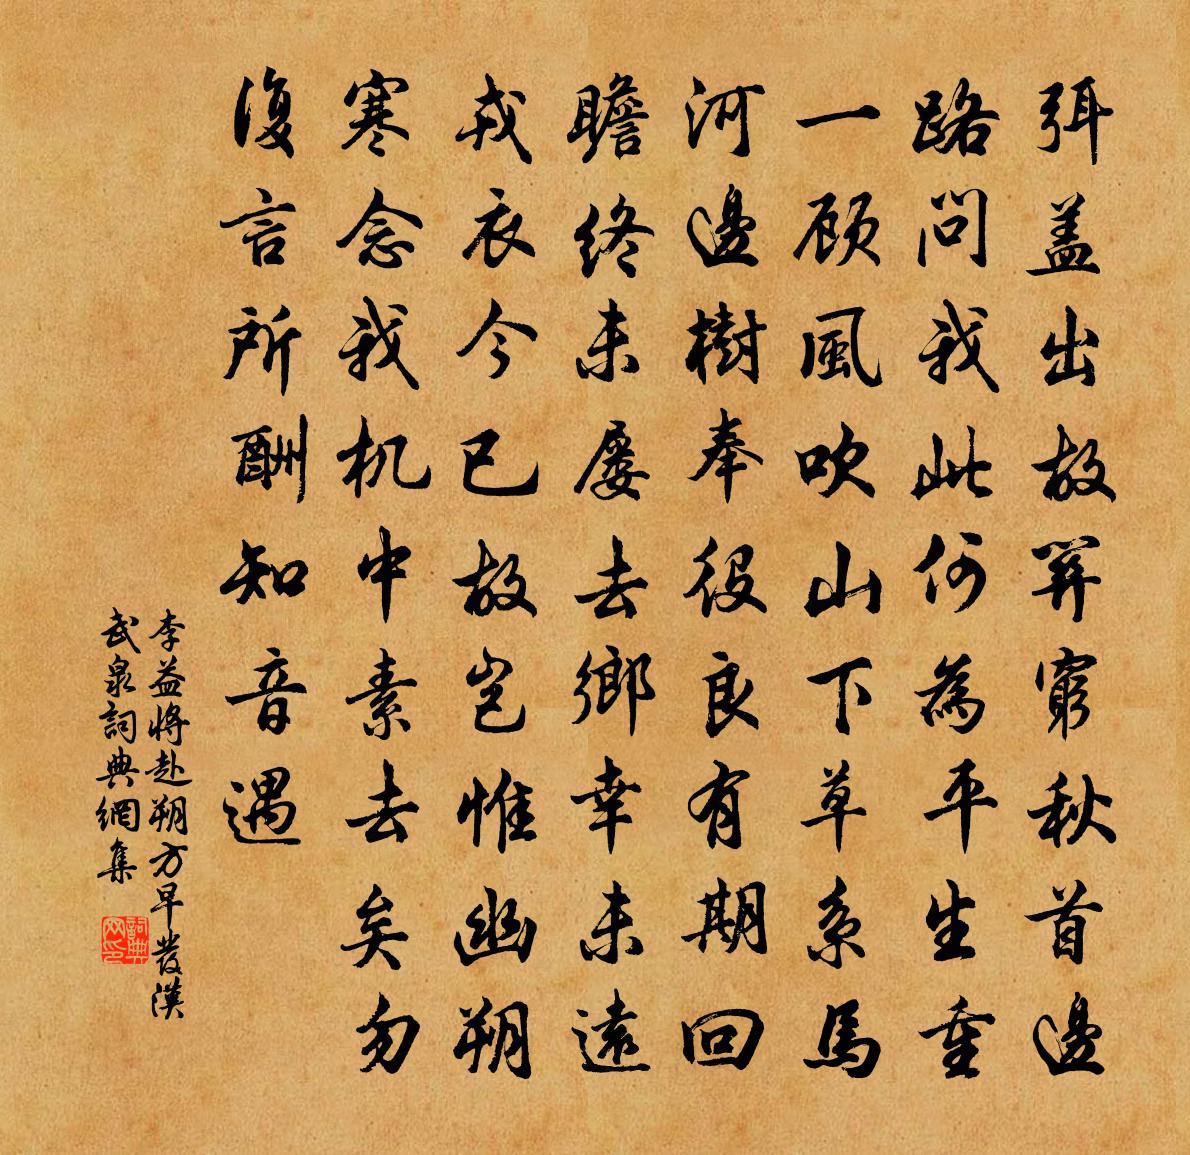 弭盖出故關窮秋首邊
路問我此何為平生重
一顾風吹山下草系馬
河邊樹奉役良有期回
瞻終未屡去鄉幸未遠
戎衣今已故豈惟幽朔
寒念我机中素去矣勿
復言所酬知音遇
李益將赴朔方早發漢
武泉詞典網集
詞典網印